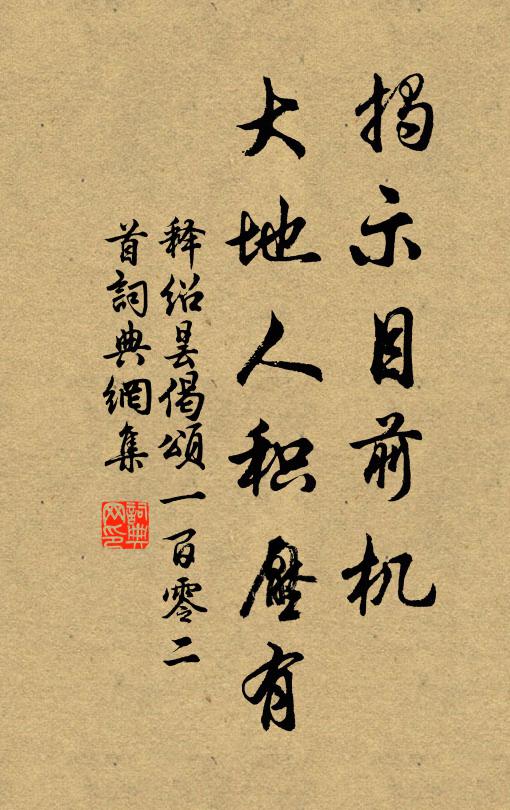 揭示目前机
大地人积压有
释绍昙偈頌一百零二
首詞典網集
詞典
网印